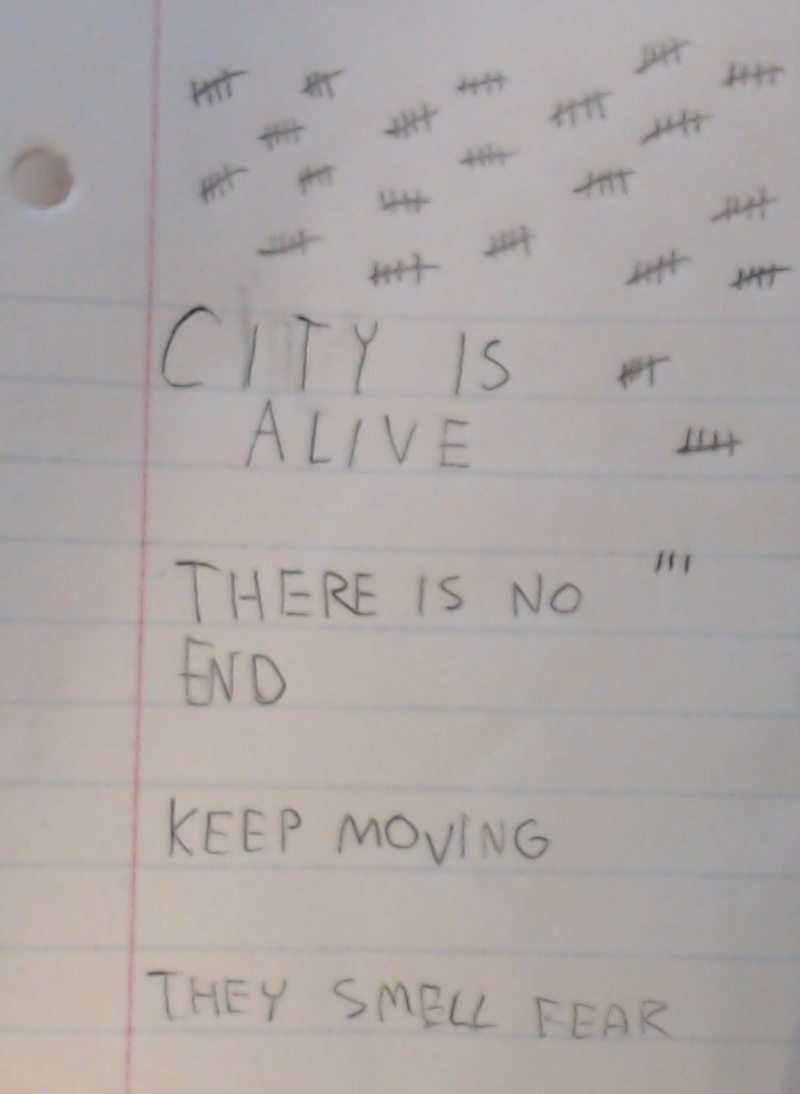 CITY IS
ALIVE
THERE IS NO
END
KEEP MOVING
THEY SMELL FEAR